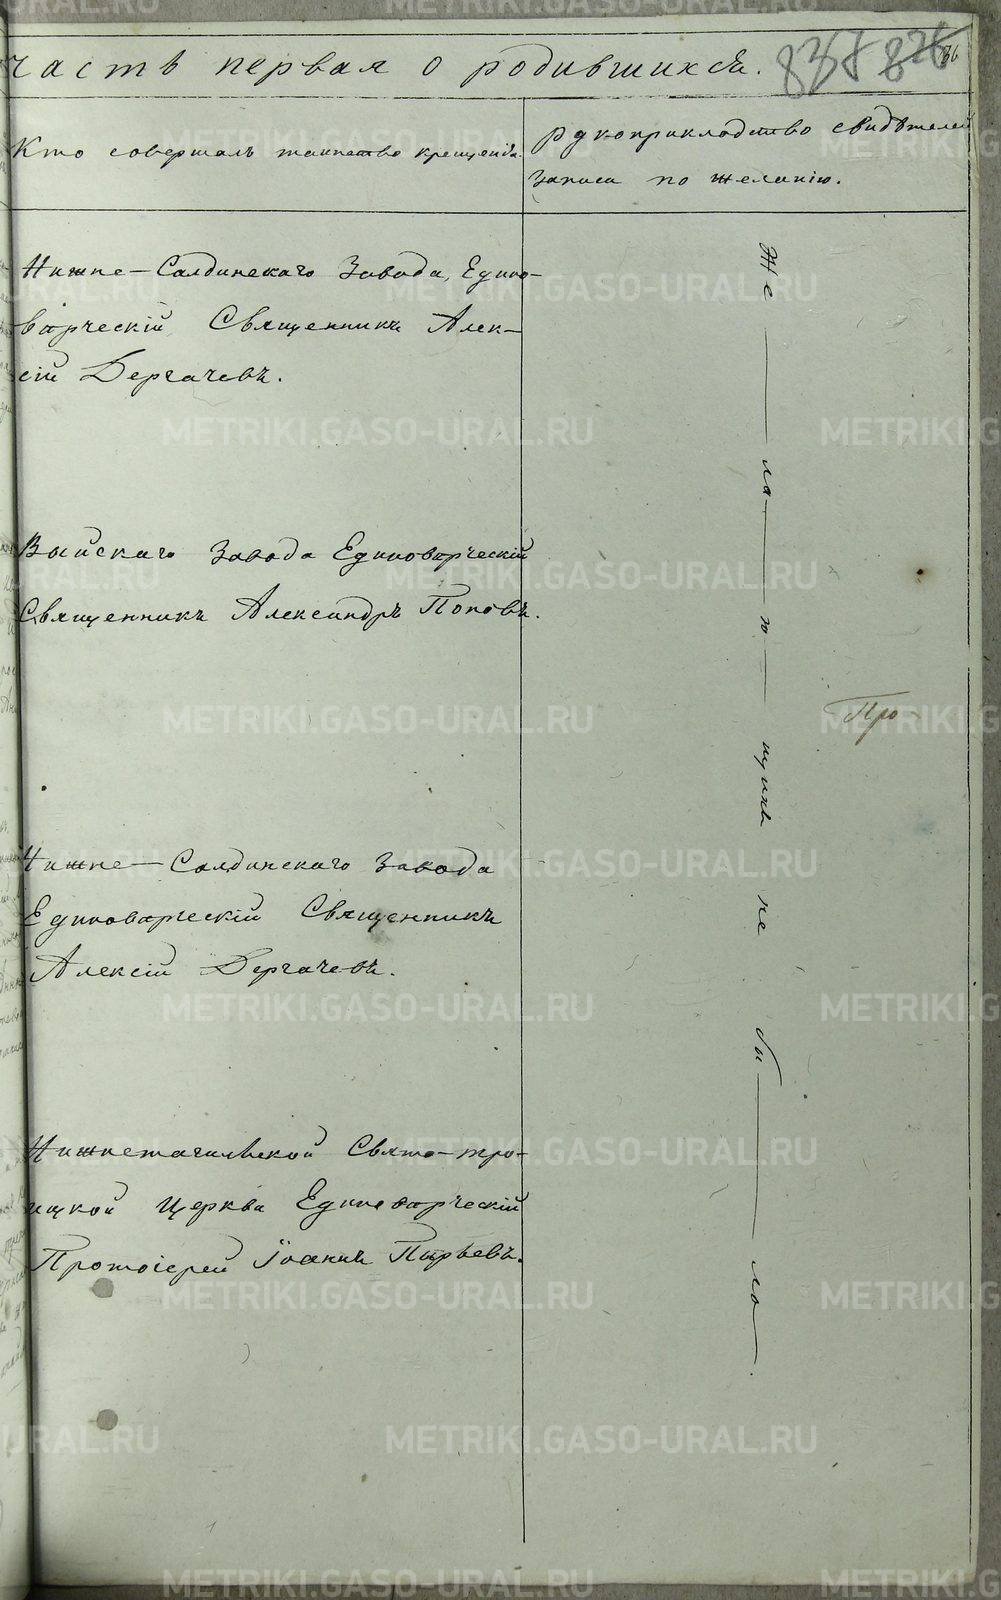 часть первая о родившихся.
Кто совершалъ таинство крещенія.
рукоприкладство свидѣтелей
записи по желанію.
Нижне-Салдинскаго Завода, Едино-
вѣрческій Священникъ Алек-
сій Дергачевъ.
Выйскаго Завода Единовѣрческій
Священникъ Александръ Поповъ.
Нижне-Салдинскаго Завода
Единовѣрческій Священникъ
Алексій Дергачевъ.
Нижнетагильской Свято-тро-
ицкой Церкви Единовѣрческій
Протоіерей Іоаннъ Пырьевъ.
Же — ла — ю — щихъ не бы — ло.
Про-
METRIKI.GASO-URAL.RU